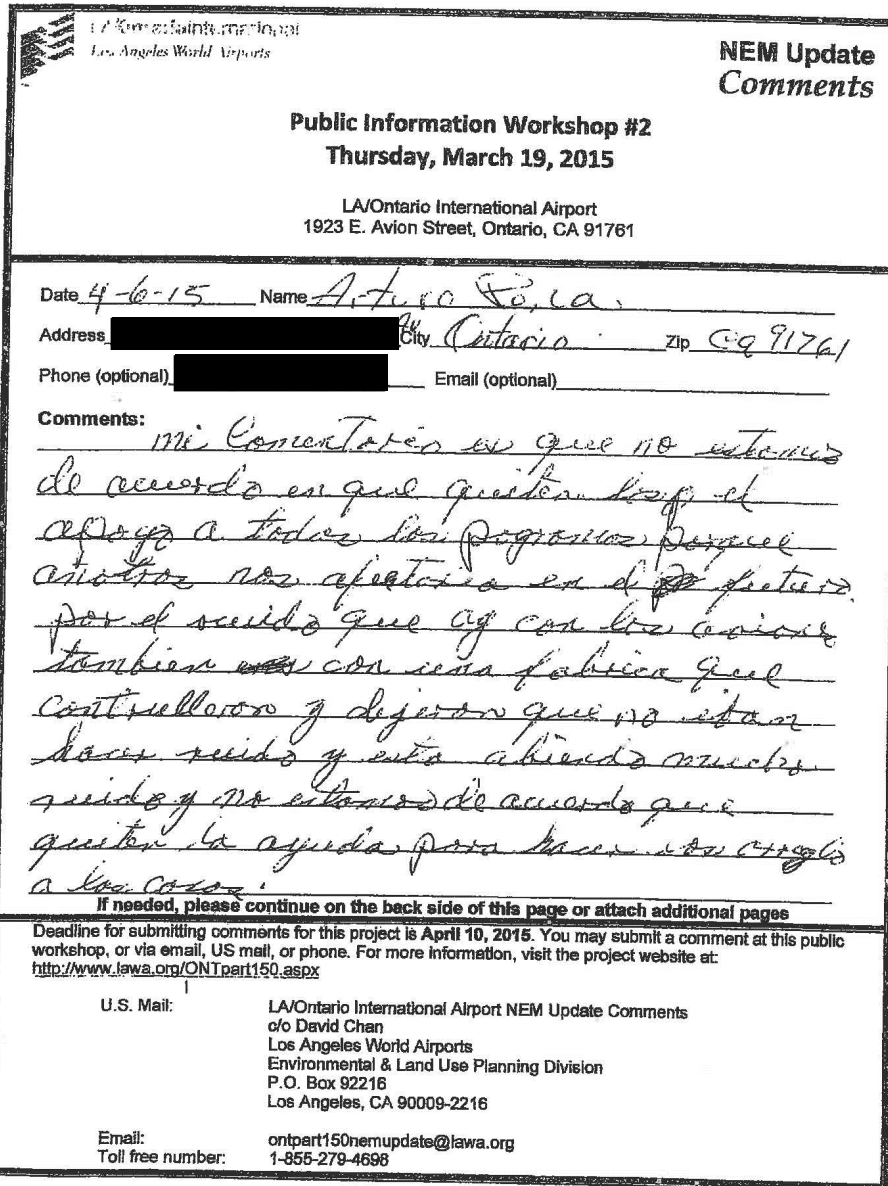 Los Angeles World Airports
NEM Update
Comments
Public Information Workshop #2
Thursday, March 19, 2015
LA/Ontario International Airport
1923 E. Avion Street, Ontario, CA 91761
Date 4-6-15 Name Arturo
Address City Ontario Zip Ca 91761
Phone (optional) Email (optional)
Comments:
mi Comentario es que no estamos
de acuerdo en que quiten el
apoyo a todos los pogramas porque
anotros nos afectaria en el futuro
por el ruido que ay con los aviones
tambien con una fabrica que
contrulleron y dijeron que no iban
hacer ruido y esta abiendo mucho
ruido y no estamos de acuerdo que
quiten la ayuda para hacer los arreglo
a las casas.
If needed, please continue on the back side of this page or attach additional pages
Deadline for submitting comments for this project is April 10, 2015. You may submit a comment at this public
workshop, or via email, US mail, or phone. For more information, visit the project website at:
http://www.lawa.org/ONTpart150.aspx
U.S. Mail: LA/Ontario International Airport NEM Update Comments
c/o David Chan
Los Angeles World Airports
Environmental & Land Use Planning Division
P.O. Box 92216
Los Angeles, CA 90009-2216
Email: ontpart150nemupdate@lawa.org
Toll free number: 1-855-279-4698